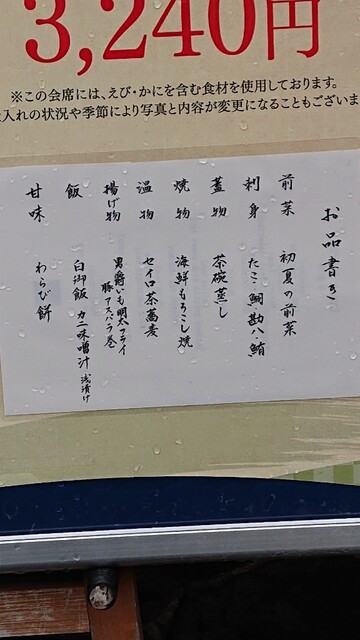 3,240円
※この会席には、えび・かにを含む食材を使用しております。
入れの状況や季節により写真と内容が変更になることもございま
お品書き
前菜 初夏の前菜
刺身 たこ 鯛 勘八 鮪
蓋物 茶碗蒸し
焼物 海鮮もろこし焼
温物 セイロ茶蕎麦
揚げ物 男爵いも明太フライ
豚アスパラ巻
飯 白御飯 カニ味噌汁 浅漬け
甘味 わらび餅